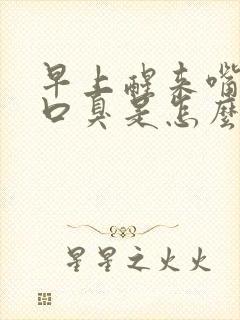 早上醒来嘴
口臭是怎麼
星星之火火